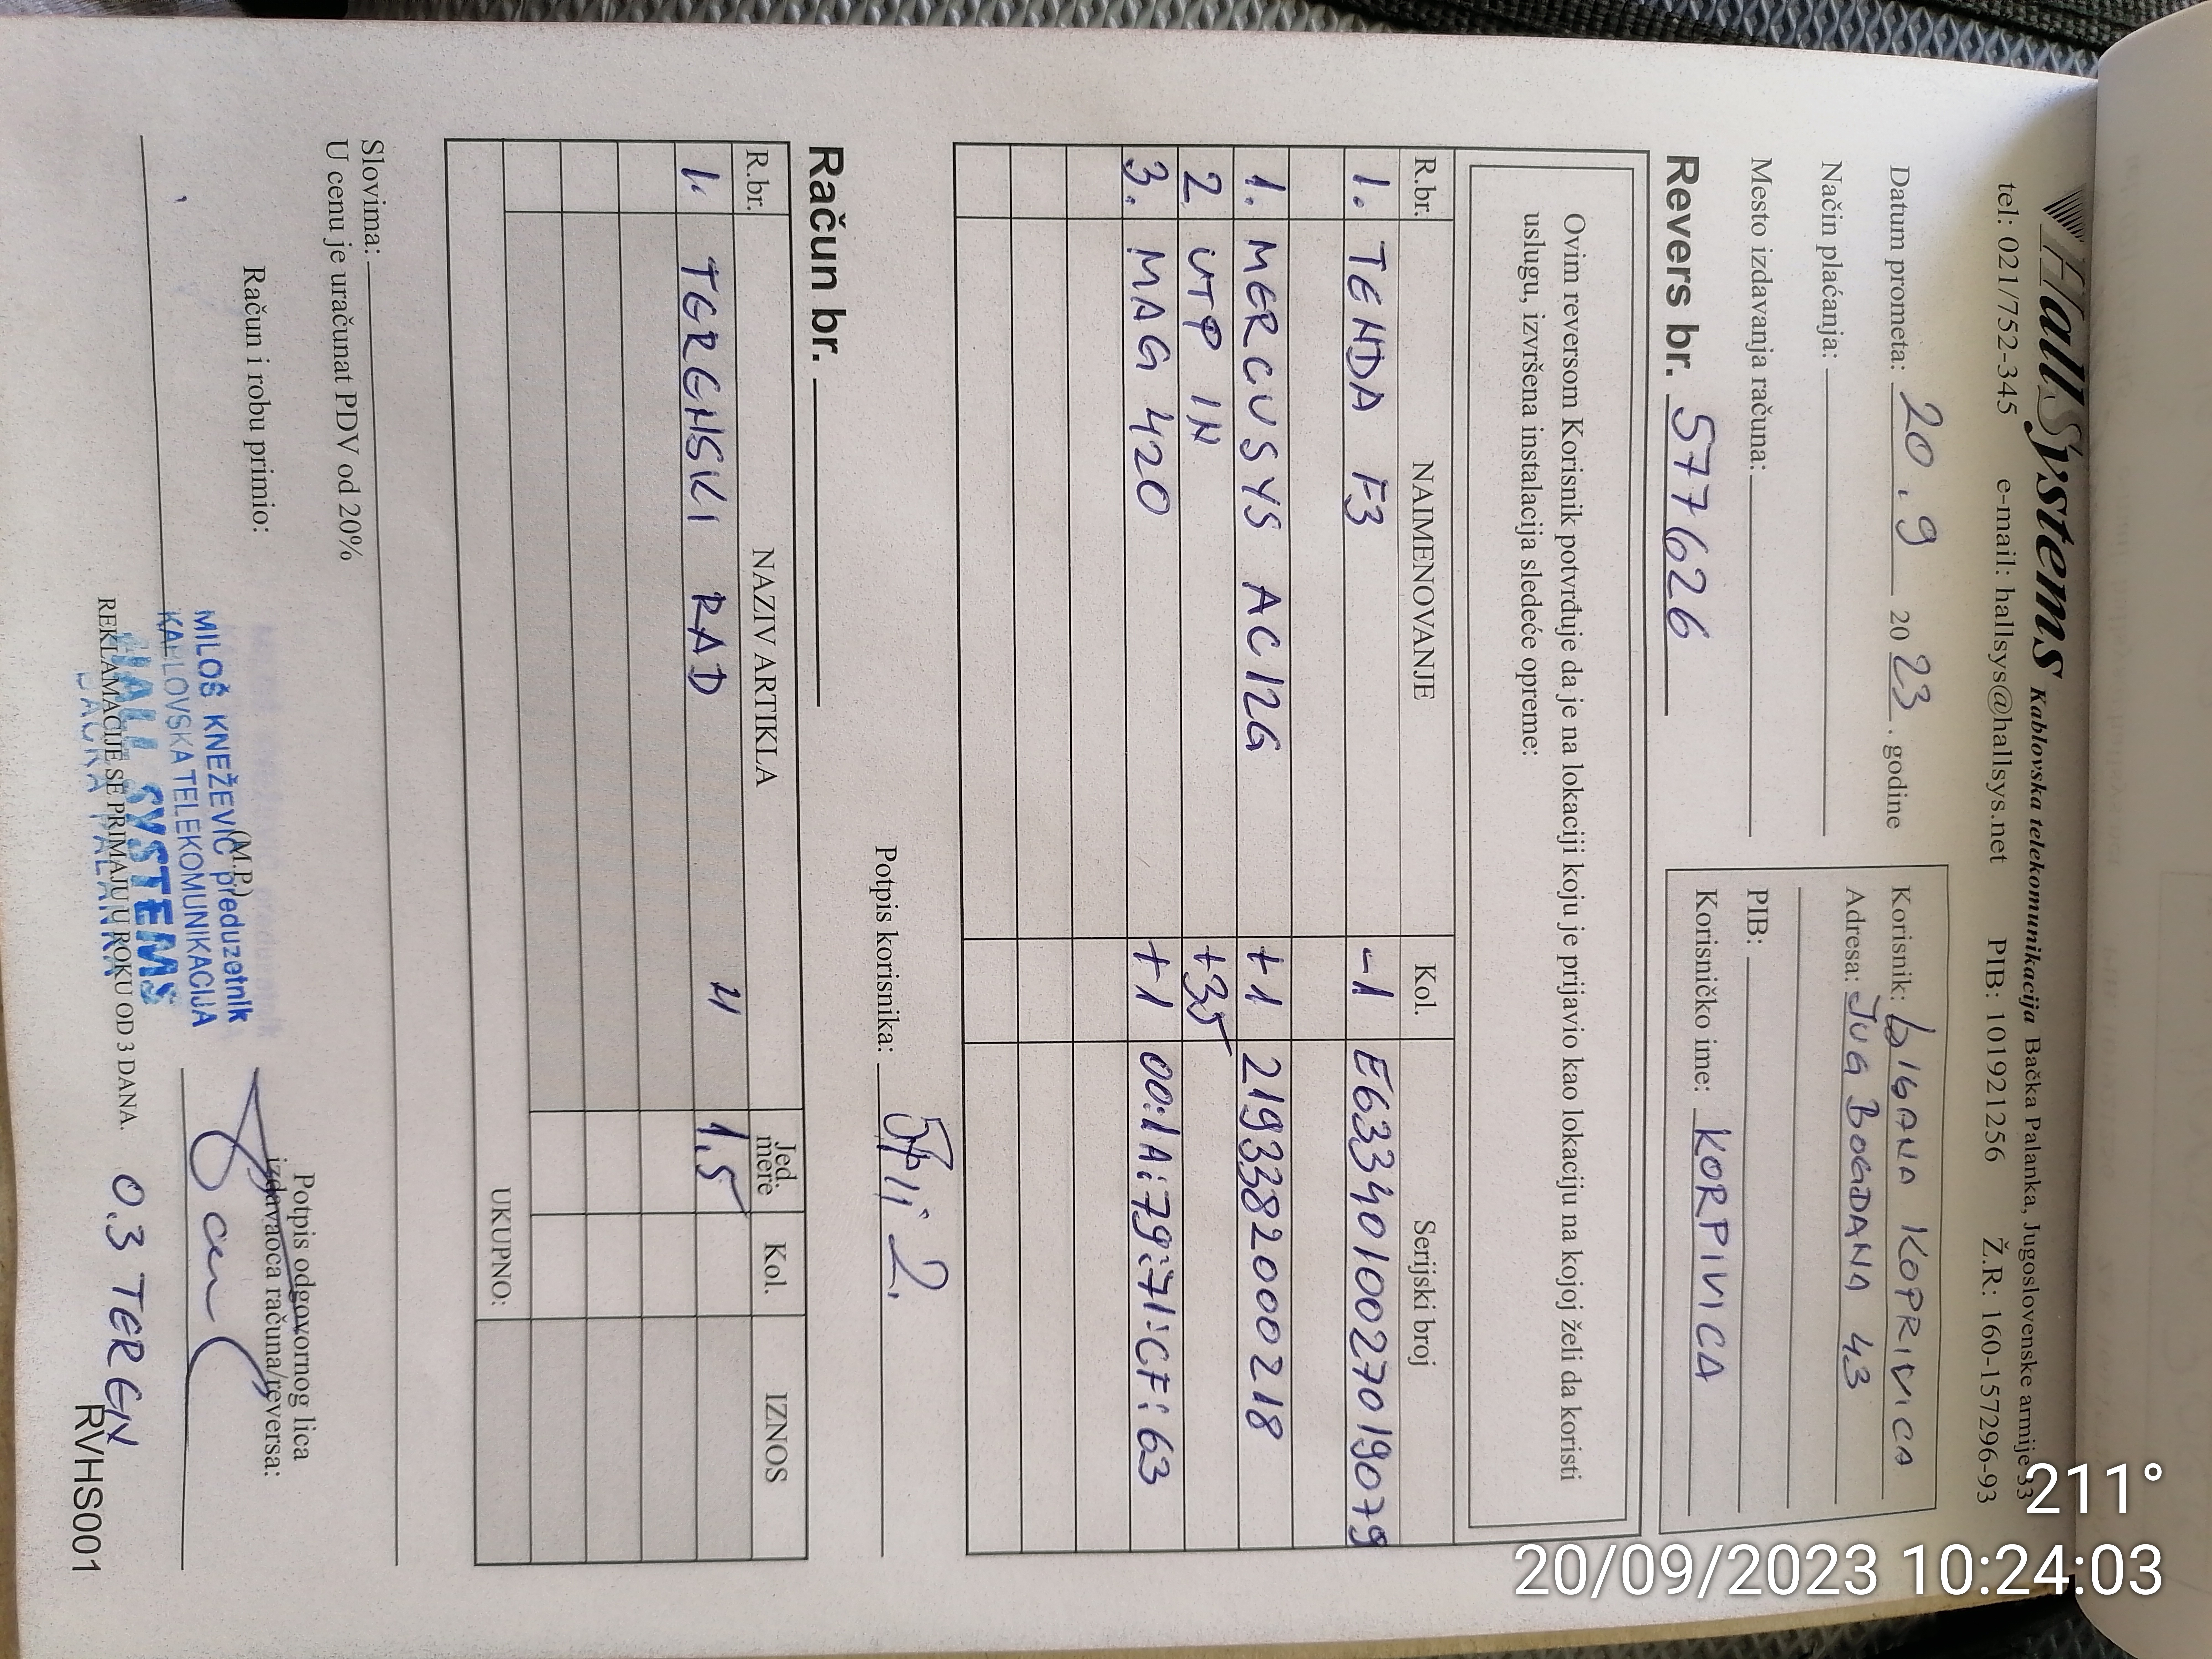 HallSystems Kablovska telekomunikacija Bačka Palanka, Jugoslovenske armije 33
tel: 021/752-345 e-mail: hallsys@hallsys.net PIB: 101921256 Ž.R: 160-157296-93
Datum prometa: 20.9 2023. godine
Način plaćanja:
Mesto izdavanja računa:
Korisnik: KOPRIVICA
Adresa: JUG BOGDANA 43
PIB:
Korisničko ime: KORPIVICA
Revers br. 577626
Ovim reversom Korisnik potvrđuje da je na lokaciji koju je prijavio kao lokaciju na kojoj želi da koristi
uslugu, izvršena instalacija sledeće opreme:
R.br. NAIMENOVANJE Kol. Serijski broj
1. TENDA F3 -1 E6334010027019079
1. MERCUSYS AC12G +1 2193382000218
2 UTP IN +35
3. MAG 420 +1 00:1A:79:71:CF:63
Potpis korisnika:
Račun br.
R.br. NAZIV ARTIKLA Jed. mere Kol. IZNOS
1. TERENSKI RAD 4 1,5
UKUPNO:
Slovima:
U cenu je uračunat PDV od 20%
Račun i robu primio:
(M.P.)
Potpis odgovornog lica
izdavaoca računa/reversa:
MILOŠ KNEŽEVIĆ preduzetnik
KABLOVSKA TELEKOMUNIKACIJA
HALL SYSTEMS
BAČKA PALANKA
REKLAMACIJE SE PRIMAJU U ROKU OD 3 DANA.
0.3 TEREN
RVHS001
211°
20/09/2023 10:24:03